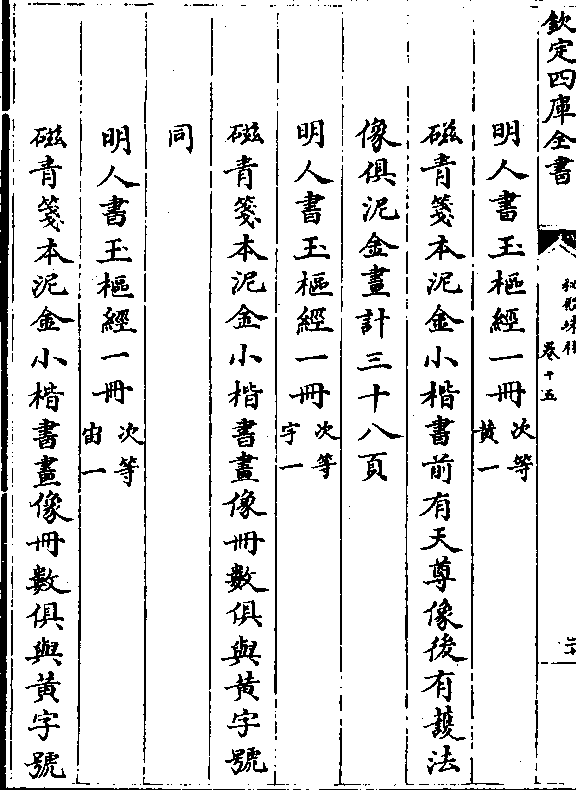 欽定四庫全書
秘殿珠林
卷十五
明人書玉樞經一冊 次等黃一
磁青箋本泥金小楷書前有天尊像後有護法
像俱泥金畫計三十八頁
明人書玉樞經一冊 次等宇一
磁青箋本泥金小楷書畫像冊數俱與黃字號
同
明人書玉樞經一冊 次等宙一
磁青箋本泥金小楷書畫像冊數俱與黃字號